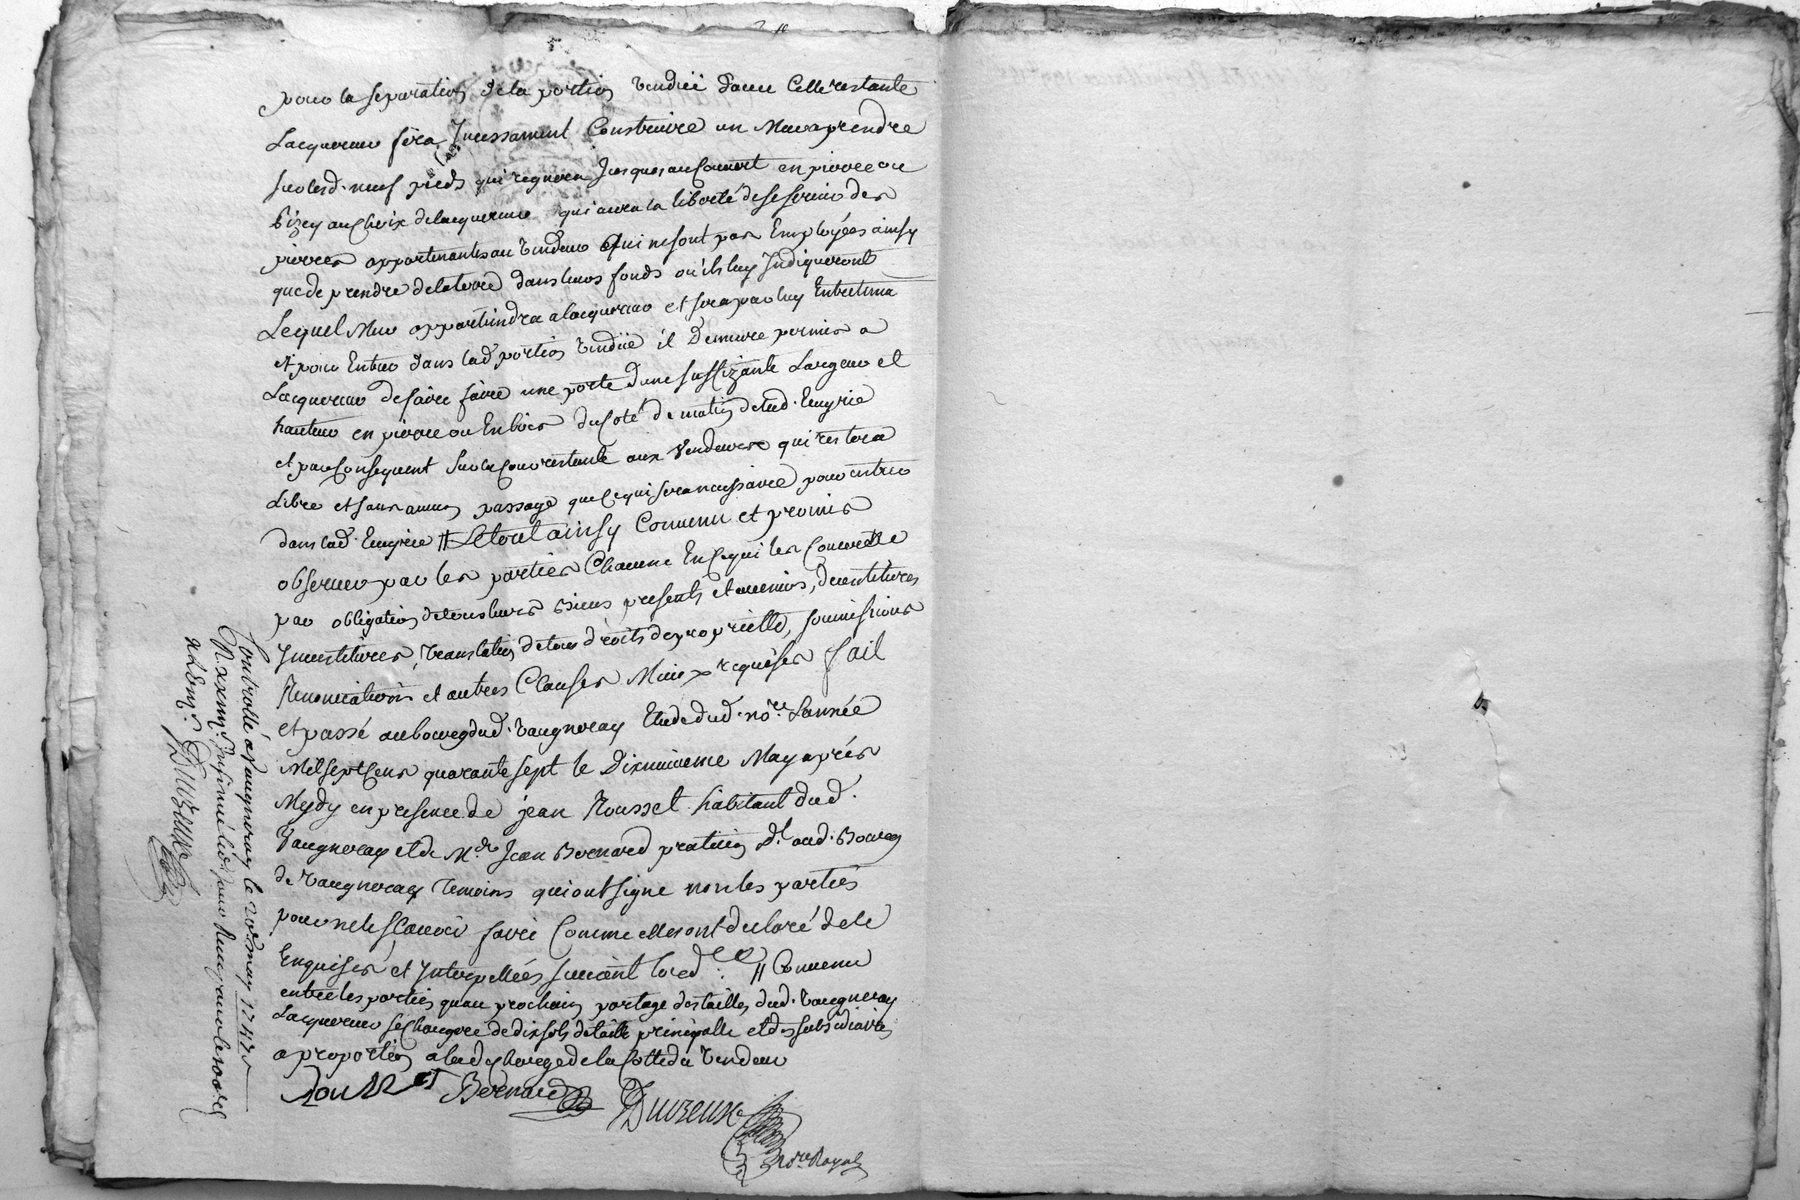 pour la separation de la portion vendüe d'avec celle restante
Lacquereur fera Incessament Construire un Mur a prendre
sur lesd. neuf pieds qui regnera Jusques au Couvert en pierre ou
Pizey au Choix de lacquereur qui aura la liberté de se servir des
pierres appartenantes au vendeur qui ne sont pas Employées ainsy
que de prendre de la terre dans leurs fonds ou ils luy Indiqueront
Lequel Mur appartiendra a lacquereur et sera par luy Entretenu
et pour Entrer dans lad. portion vendüe il Demeure permis a
Lacquereur de faire faire une porte d'une suffizante Largeur et
hauteur en pierre ou En bois du Coté de matin de lad. Ecuyrie
et par Consequent sur la Cour restante aux Vendeurs qui restera
Libre et sans aucun passage que Ce qui sera necessaire pour entrer
dans lad. Ecuyrie // Le tout ainsy Convenu et promis
observer par les parties Chacune En Ce qui les Concerne
par obligation de tous leurs Biens presents et avenirs, devestitures
Investitures, translation de tous droits de proprietté, soumissions
Renonciations et autres Clauses Mieux requises fait
et passé au bourg dud. Vaugneray Etude dud. nore. L'année
Mil sept Cens quarante sept le Dixneuvieme May après
Mydy en presence de jean Rousset habitant dud.
Vaugneray et de Mr. Jean Bernard praticien dt. aud. Bourg
de Vaugneray temoins qui ont signe non les parties
pour ne le sçavoir faire Comme elles ont declaré de Ce
Enquises et Interpellées suivant lord.ce // Convenu
entre les parties quau prochain partage des tailles dud. Vaugneray
Lacquereur se Chargera de dix sols de taille principalle et des subsidiaires
a proportion a la decharge de la Cotte du Vendeur
Rousset Bernard Duvreux
nore Royal
Controllé a Vaugneray le 20e. may 1747
R. xxiiij s. Insinué led. jour